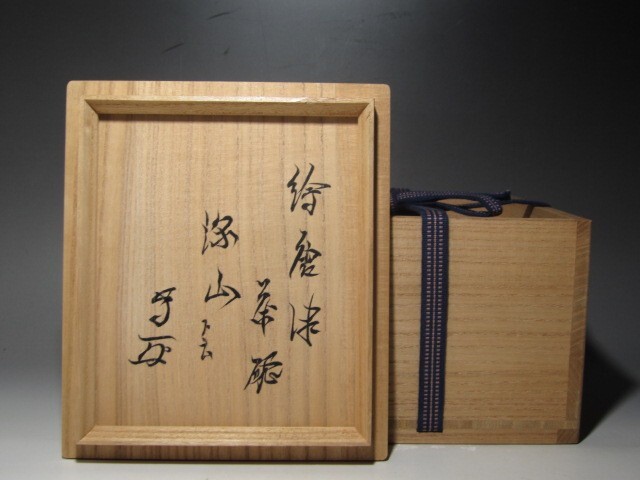 絵唐津
茶碗
深山
ト云